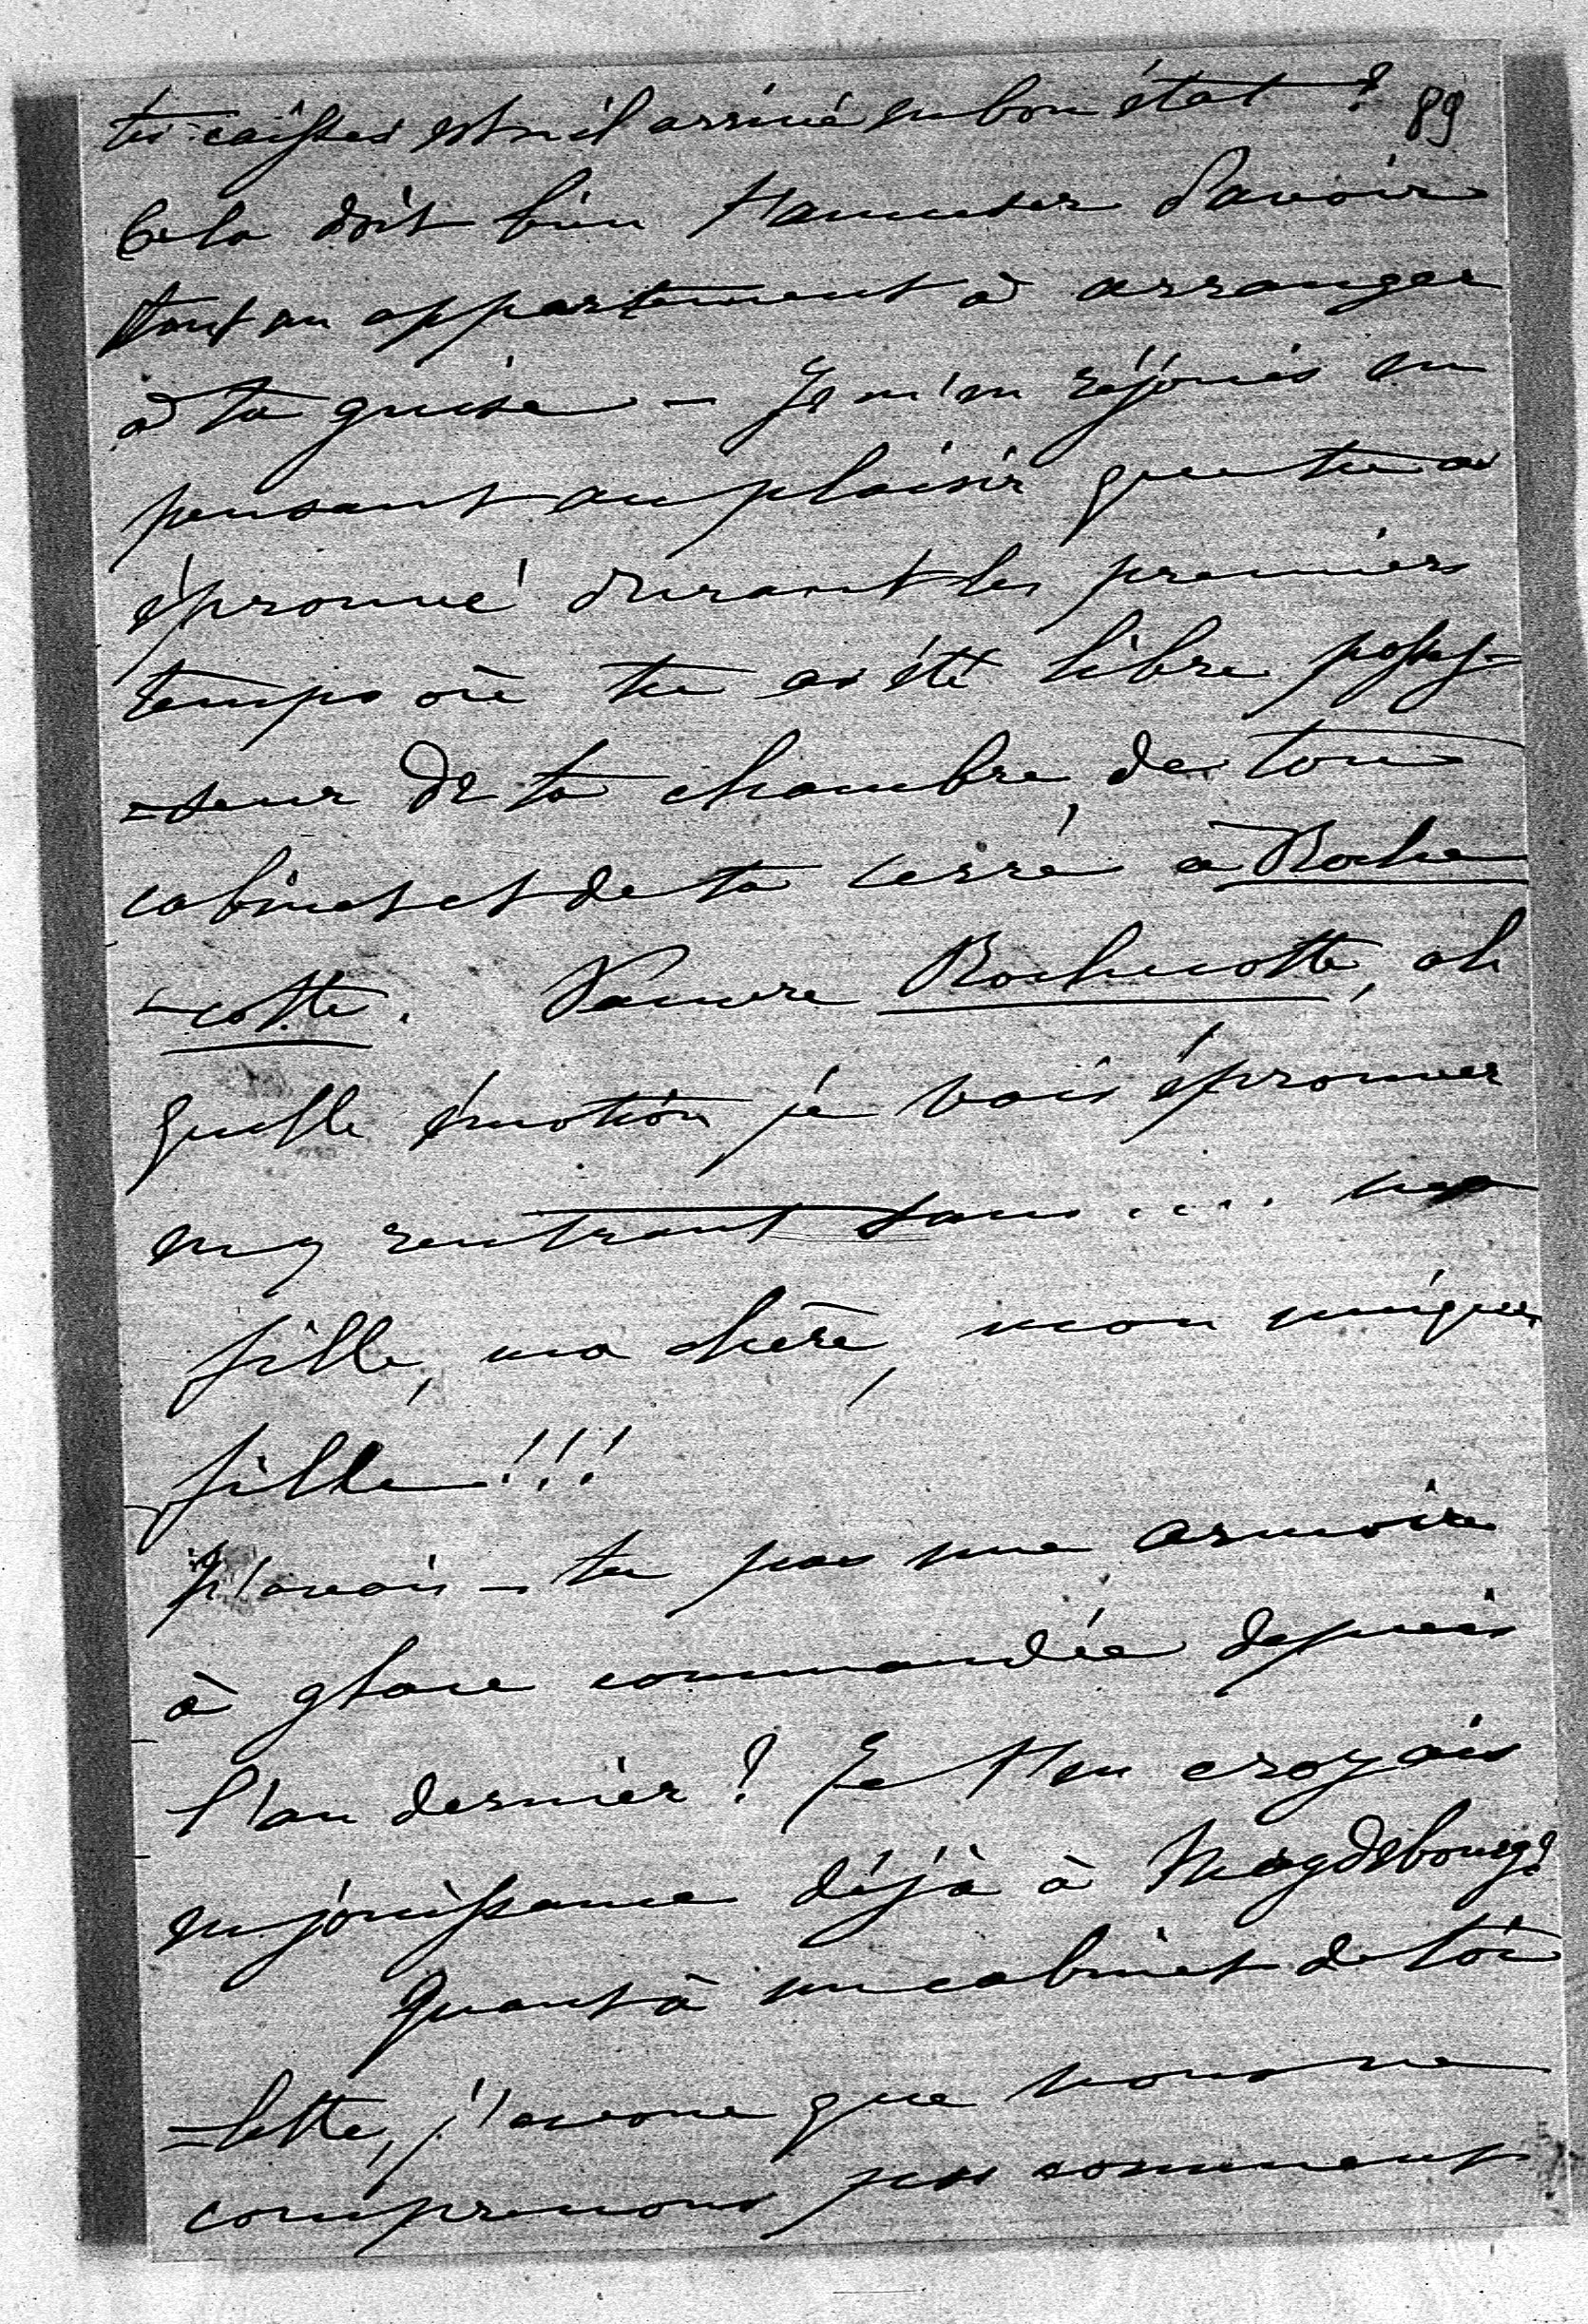 tes caisses est-il arrivé en bon état ? 89
Cela doit bien t'amuser d'avoir
tout un appartement à arranger
à ta guise – Je m'en réjouis en
pensant au plaisir que tu as
éprouvé durant les premiers
temps où tu as été libre posses-
=seur de ta chambre, de ton
cabinet et de ta serre à Roche
=cotte. Pauvre Rochecotte, ah
quelle émotion je vais éprouver
en y rentrant sans .... ma
fille, ma chère, mon unique
fille !!!
N'avais-tu pas une armoire
à glace commandée depuis
l'an dernier ? Je t'en croyais
en jouissance déjà à Magdebourg ?
Quant à un cabinet de toi
=lette, j'avoue que nous ne
comprenons pas comment